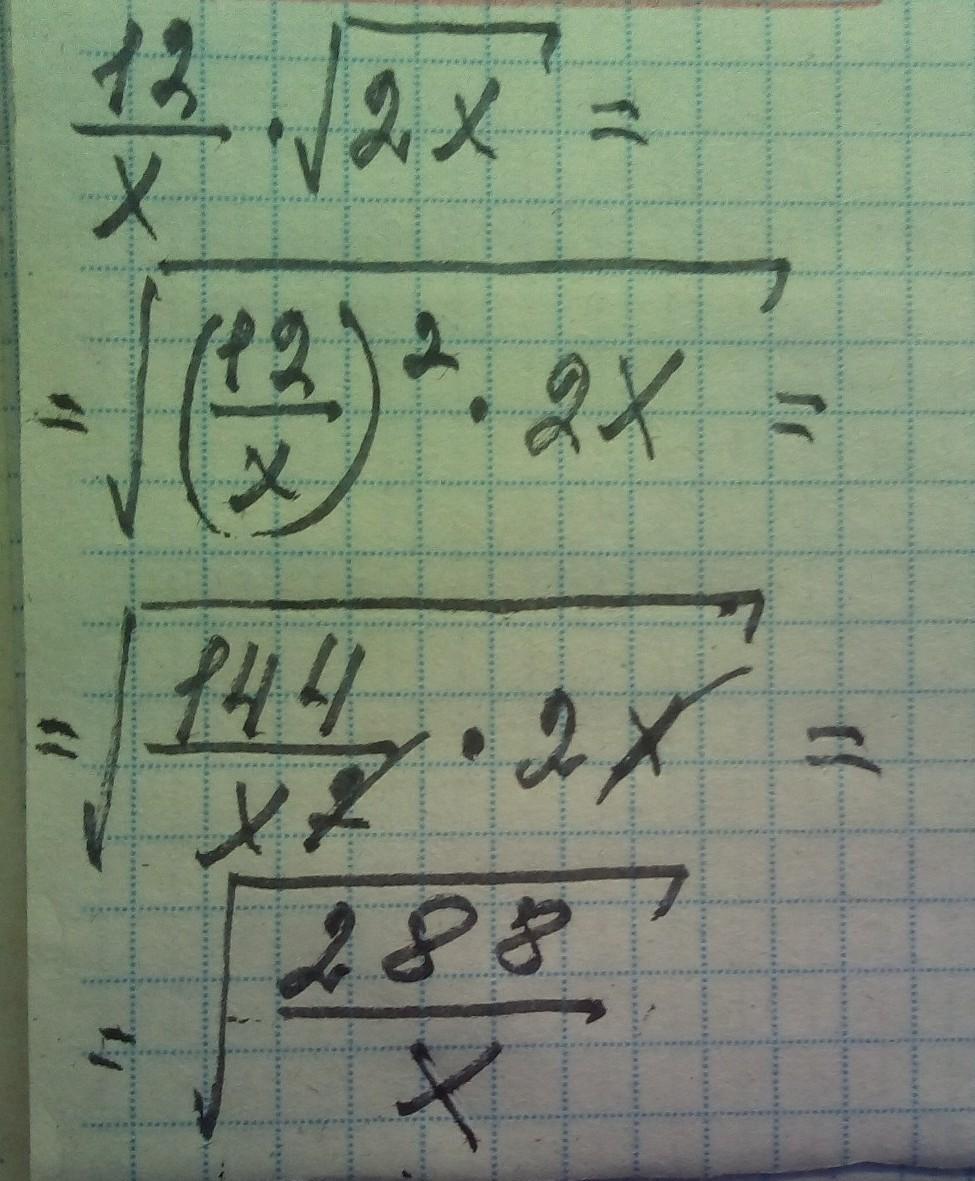 12/x · √(2x) =
= √((12/x)² · 2x) =
= √(144/x² · 2x) =
= √(288/x)